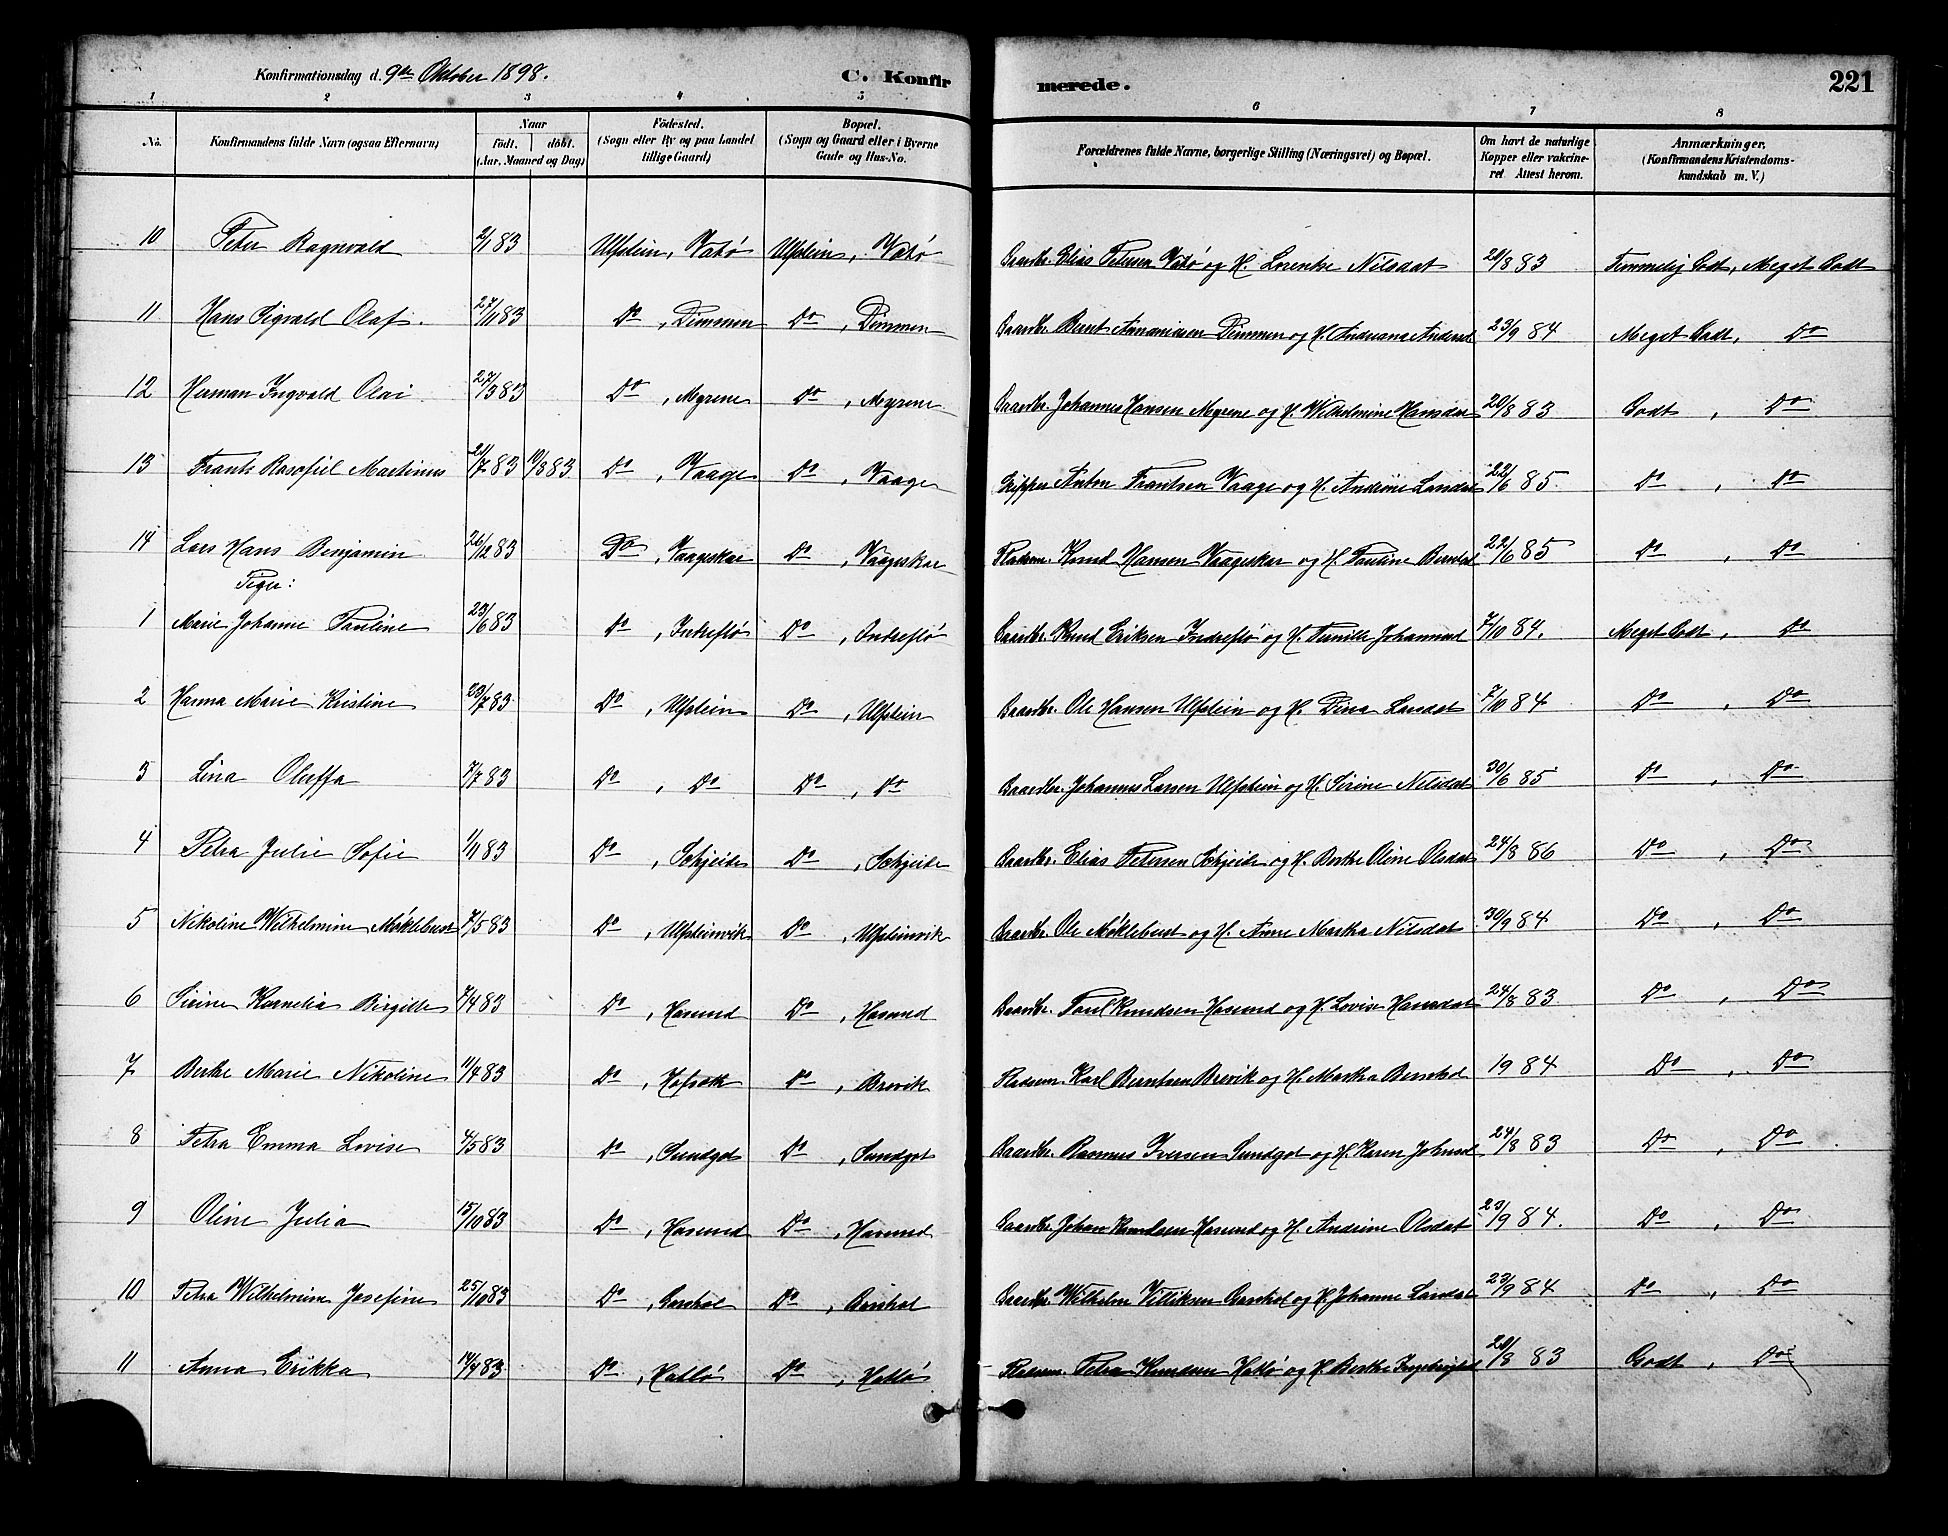 Konfirmationsdag d. 9de Oktober 1898.
C. Konfirmerede.
221
1 2 3 4 5 6 7 8
No.
Konfirmandens fulde Navn (ogsaa Efternavn)
Naar
født. døbt.
(Aar, Maaned og Dag)
Fødested.
(Sogn eller By og paa Landet tillige Gaard)
Bopæl.
(Sogn og Gaard eller i Byerne Gade og Hus-No.
Forældrenes fulde Navne, borgerlige Stilling (Næringsvei) og Bopæl.
Om havt de naturlige Kopper eller vakcineret. Attest herom.
Anmærkninger.
(Konfirmandens Kristendomskundskab m. V.)
10 Peter Ragnvald 2/1 83 Ulfstein, Vatø Ulfstein, Vatø Gaardbr. Elias Petersen Vatø og H. Lorentse Nilsdat 20/8 83 Temmelig Godt, Meget Godt
11 Hans Sigvald Olaf 27/11 83 Do, Dimmen Do, Dimmen Gaardbr. Bernt Ananiasen Dimmen og H. Andriane Andersd 23/9 84 Meget Godt, Do
12 Herman Ingvald Olai 27/3 83 Do, Myrene Do, Myrene Gaardbr. Johannes Hansen Myrene og H. Wilhelmine Hansdat 20/8 83 Godt, Do
13 Frants Martinus 21/7 83 19/8 83 Do, Vaage Do, Vaage Skipper Anton Frantsen Vaage og H. Andrine Larsdat 22/6 85 Do, Do
14 Lars Hans Benjamin 26/12 83 Do, Vaageskar Do, Vaageskar Pladsm. Knud Hansen Vaageskar og H. Pauline Berntsd 22/6 85 Do, Do
Piger:
1 Marie Johanne Pauline 23/6 83 Do, Indreflø Do, Indreflø Gaardbr. Knud Eriksen Indreflø og H. Pernille Johannesd 7/10 84. Meget Godt, Do
2 Hanna Marie Kristine 23/7 83 Do, Ulfstein Do, Ulfstein Gaardbr. Ole Hansen Ulfstein og H. Dina Larsdat 7/10 84 Do, Do
3 Lina Oluffa 7/7 83 Do, Do Do, Do Gaardbr. Johannes Larsen Ulfstein og H. Sirine Nilsdat 30/6 85 Do, Do
4 Petra Julie Sofie 1/11 83 Do, Schjeide Do, Schjeide Gaardbr. Elias Petersen Schjeide og H. Berthe Oline Olsdat 24/8 86 Do, Do
5 Nikoline Wilhelmine Møklebust 7/5 83 Do, Ulfsteinvik Do, Ulfsteinvik Gaardbr. Ole Møklebust og H. Anne Martha Nilsdat 30/9 84 Do, Do
6 Sirine Kornelia Birgitte 7/4 83 Do, Hasund Do, Hasund Gaardbr. Paul Knudsen Hasund og H. Lovise Hansdat 24/8 83 Do, Do
7 Berthe Marie Nikoline 11/4 83 Do, Do, Brevik Pladsm. Karl Berntsen Brevik og H. Martha Berntsd 19 84 Do, Do
8 Petra Emma Lovise 4/5 83 Do, Sundgot Do, Sundgot Gaardbr. Rasmus Iversen Sundgot og H. Karen Johnsd 24/8 83 Do, Do
9 Oline Julia 15/10 83 Do, Hasund Do, Hasund Gaardbr. Johan Knudsen Hasund og H. Andrine Olsdat 23/9 84. Do, Do
10 Petra Wilhelmine Josefine 25/10 83 Do, Garshol Do, Garshol Gaardbr. Wilhelm Garshol og H. Johanne Larsdat 23/9 84 Do, Do
11 Anna Erikka 14/4 83 Do, Hatlø Do, Hatlø Pladsm. Petter Knudsen Hatlø og H. Berthe Ingebrigtsd 20/8 83 Godt, Do